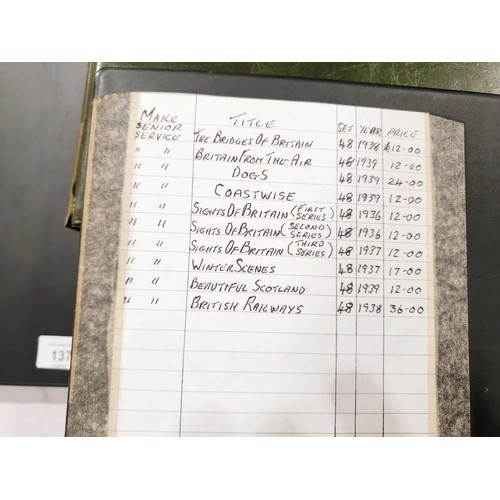 MAKE TITLE SET YEAR PRICE
SENIOR SERVICE THE BRIDGES OF BRITAIN 48 1938 £12-00
" " BRITAIN FROM THE AIR 48 1939 12-00
" " DOGS 48 1939 24-00
" " COASTWISE 48 1939 12-00
" " SIGHTS OF BRITAIN (FIRST SERIES) 48 1936 12-00
" " SIGHTS OF BRITAIN (SECOND SERIES) 48 1936 12-00
" " SIGHTS OF BRITAIN (THIRD SERIES) 48 1937 12-00
" " WINTER SCENES 48 1937 17-00
" " BEAUTIFUL SCOTLAND 48 1939 12-00
" " BRITISH RAILWAYS 48 1938 36-00
137